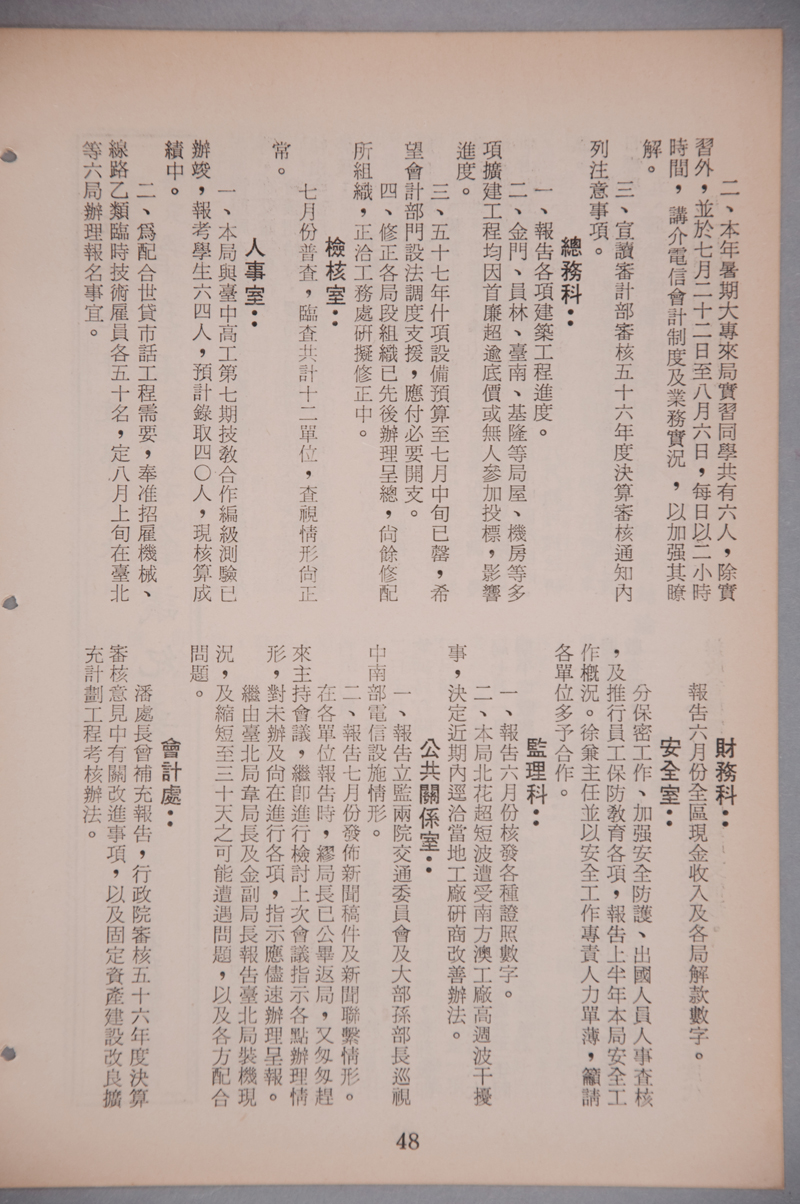 二、本年暑期大專來局實習同學共有六人，除實
習外，並於七月二十二日至八月六日，每日以二小時
時間，講介電信會計制度及業務實況，以加强其瞭
解。
三、宣讀審計部審核五十六年度決算審核通知內
列注意事項。
總務科：
一、報告各項建築工程進度。
二、金門、員林、臺南、基隆等局屋、機房等多
項擴建工程均因首廉超逾底價或無人參加投標，影響
進度。
三、五十七年什項設備預算至七月中旬已罄，希
望會計部門設法調度支援，應付必要開支。
四、修正各局段組織已先後辦理呈總，尙餘修配
所組織，正洽工務處研擬修正中。
檢核室：
七月份普查，臨查共計十二單位，查視情形尙正
常。
人事室：
一、本局與臺中高工第七期技教合作編級測驗已
辦竣，報考學生六四人，預計錄取四〇人，現核算成
績中。
二、爲配合世貸市話工程需要，奉准招雇機械、
線路乙類臨時技術雇員各五十名，定八月上旬在臺北
等六局辦理報名事宜。
財務科：
報告六月份全區現金收入及各局解款數字。
安全室：
分保密工作、加强安全防護、出國人員人事查核
，及推行員工保防教育各項，報告上半年本局安全工
作概況。徐兼主任並以安全工作專責人力單薄，籲請
各單位多予合作。
監理科：
一、報告六月份核發各種證照數字。
二、本局北花超短波遭受南方澳工廠高週波干擾
事，決定近期內逕洽當地工廠研商改善辦法。
公共關係室：
一、報告立監兩院交通委員會及大部孫部長巡視
中南部電信設施情形。
二、報告七月份發佈新聞稿件及新聞聯繫情形。
在各單位報告時，繆局長已公畢返局，又匆匆趕
來主持會議，繼卽進行檢討上次會議指示各點辦理情
形，對未辦及尙在進行各項，指示應儘速辦理呈報。
繼由臺北局韋局長及金副局長報告臺北局裝機現
況，及縮短至三十天之可能遭遇問題，以及各方配合
問題。
會計處：
潘處長曾補充報告，行政院審核五十六年度決算
審核意見中有關改進事項，以及固定資產建設改良擴
充計劃工程考核辦法。
48